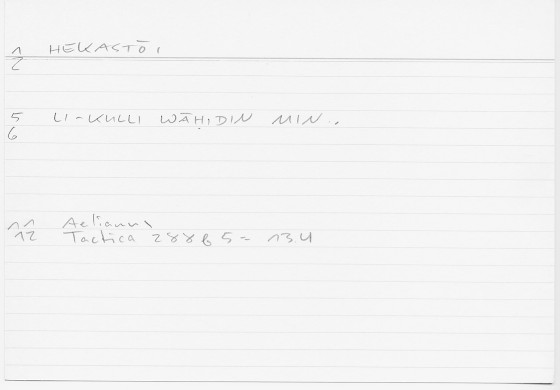 1 HEKASTŌI
2
5 LI-KULLI WĀḤIDIN MIN..
6
11 Aelianus
12 Tactica 288b5 = 13.4